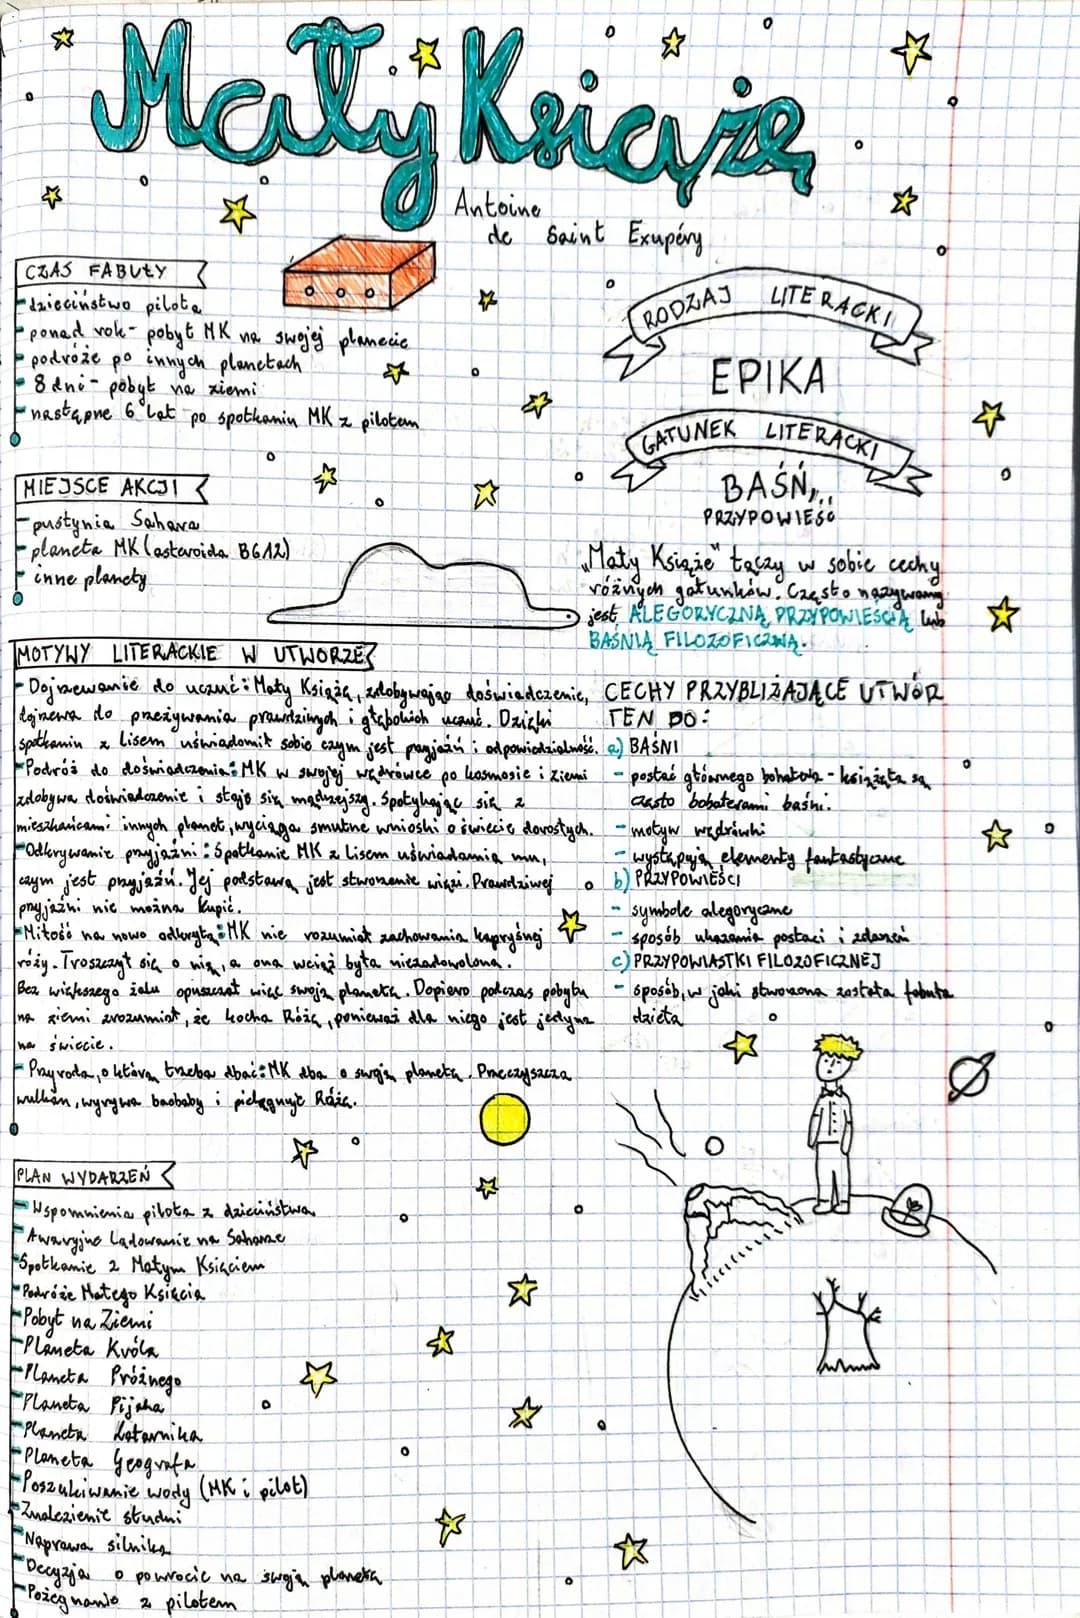 Mały Książę
Antoine
de Saint Exupéry
CZAS FABUŁY
- dzieciństwo pilota
- ponad rok - pobyt MK na swojej planecie
- podróże po innych planetach
- 8 dni - pobyt na ziemi
- następne 6 lat po spotkaniu MK z pilotem
MIEJSCE AKCJI
- pustynia Sahara
- planeta MK (asteroida B612)
- inne planety
RODZAJ LITERACKI
EPIKA
GATUNEK LITERACKI
BAŚŃ,..
PRZYPOWIEŚĆ
„Mały Książe" łączy w sobie cechy
różnych gatunków. Często nazywany
jest ALEGORYCZNĄ PRZYPOWIEŚCIĄ lub
BAŚNIĄ FILOZOFICZNĄ.
MOTYWY LITERACKIE W UTWORZE
- Dojrzewanie do uczuć: Mały Książę, zdobywając doświadczenie,
dojrzewa do przeżywania prawdziwych i głębokich uczuć. Dzięki
spotkaniu z Lisem uświadomił sobie czym jest przyjaźń i odpowiedzialność.
- Podróż do doświadczenia: MK w swojej wędrówce po kosmosie i ziemi
zdobywa doświadczenie i staje się mądrzejszy. Spotykając się z
mieszkańcami innych planet, wyciąga smutne wnioski o świecie dorosłych.
- Odkrywanie przyjaźni: Spotkanie MK z Lisem uświadamia mu,
czym jest przyjaźń. Jej podstawą jest stworzenie więzi. Prawdziwej
przyjaźni nie można kupić.
- Miłość na nowo odkryta: MK nie rozumiał zachowania kapryśnej
róży. Troszczył się o nią, a ona wciąż była niezadowolona.
Bez większego żalu opuszczał więc swoją planetę. Dopiero podczas pobytu
na ziemi zrozumiał, że kocha Różę, ponieważ dla niego jest jedyna
na świecie.
- Przyroda, o którą trzeba dbać: MK dba o swoją planetę. Przeczyszcza
wulkan, wyrywa baobaby i pielęgnuje Różę.
CECHY PRZYBLIŻAJĄCE UTWÓR
TEN DO:
a) BAŚNI
- postać głównego bohatera - książęta są
często bohaterami baśni.
- motyw wędrówki
- występują elementy fantastyczne
b) PRZYPOWIEŚCI
- symbole alegoryczne
- sposób ukazania postaci i zdarzeń
c) PRZYPOWIASTKI FILOZOFICZNEJ
- sposób, w jaki stworzona została fabuła
dzieła
PLAN WYDARZEŃ
- Wspomnienia pilota z dzieciństwa
- Awaryjne lądowanie na Saharze
- Spotkanie z Małym Księciem
- Podróże Małego Księcia
- Pobyt na Ziemi
- Planeta Króla
- Planeta Próżnego
- Planeta Pijaka
- Planeta Latarnika
- Planeta Geografa
- Poszukiwanie wody (MK i pilot)
- Znalezienie studni
- Naprawa silnika
- Decyzja o powrocie na swoją planetę
- Pożegnanie z pilotem